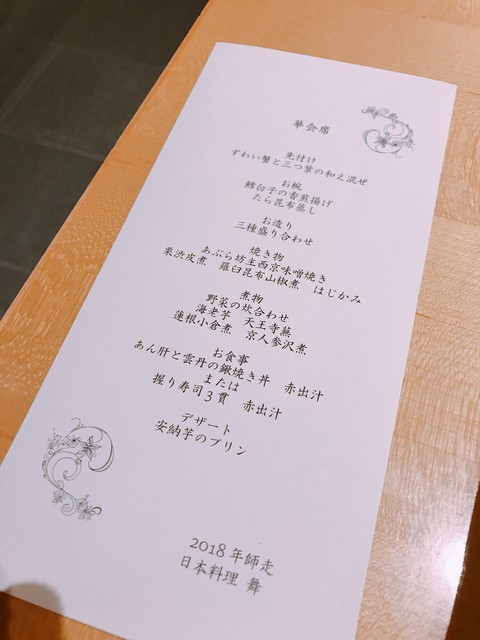 華会席
先付け
ずわい蟹と三つ葉の和え混ぜ
お椀
鱈白子の香煎揚げ
たら昆布蒸し
お造り
三種盛り合わせ
焼き物
あぶら坊主西京味噌焼き
栗渋皮煮　羅臼昆布山椒煮　はじかみ
煮物
野菜の炊合わせ
海老芋　天王寺蕪
蓮根小倉煮　京人参沢煮
お食事
あん肝と雲丹の鍬焼き丼　赤出汁
または
握り寿司３貫　赤出汁
デザート
安納芋のプリン
2018年師走
日本料理 舞